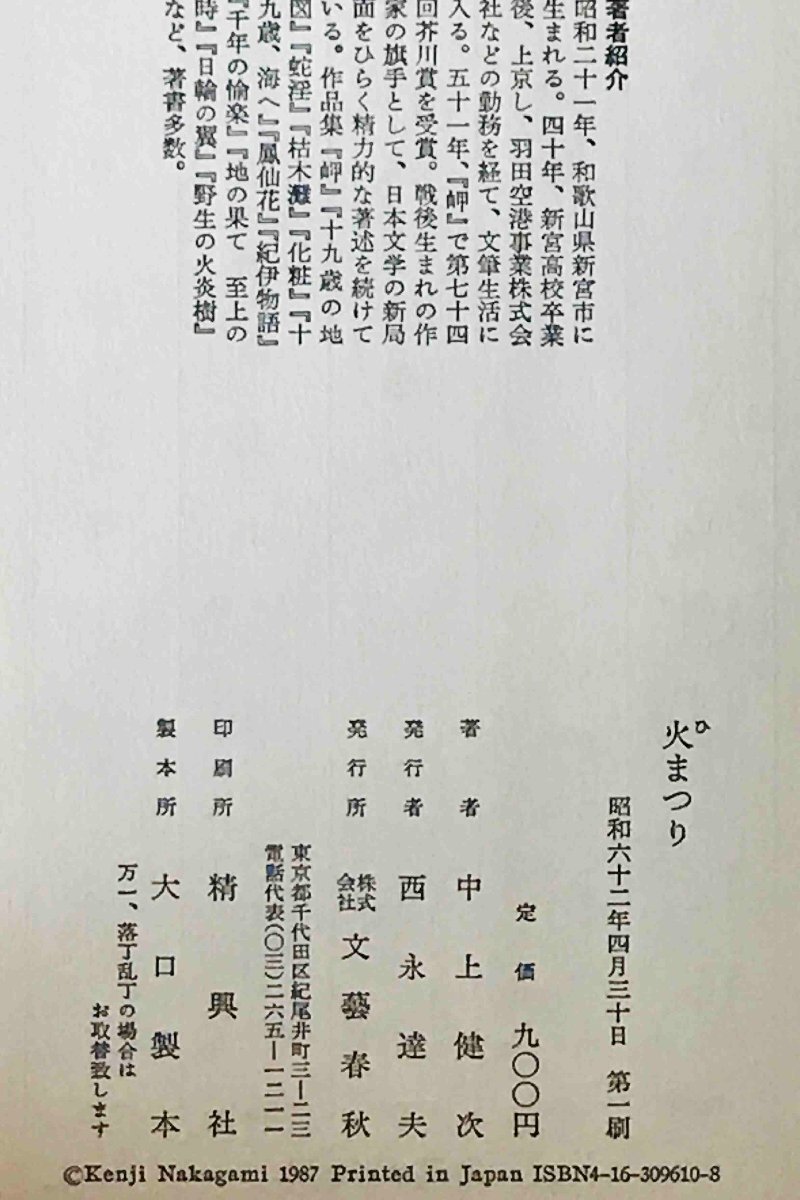 著者紹介
昭和二十一年、和歌山県新宮市に
生まれる。四十年、新宮高校卒業
後、上京し、羽田空港事業株式会
社などの勤務を経て、文筆生活に
入る。五十一年、『岬』で第七十四
回芥川賞を受賞。戦後生まれの作
家の旗手として、日本文学の新局
面をひらく精力的な著述を続けて
いる。作品集『岬』『十九歳の地
図』『蛇淫』『枯木灘』『化粧』『十
九歳、海へ』『鳳仙花』『紀伊物語』
『千年の愉楽』『地の果て 至上の
時』『日輪の翼』『野生の火炎樹』
など、著書多数。
火まつり
ひ
昭和六十二年四月三十日 第一刷
定価 九〇〇円
著者 中上健次
発行者 西永達夫
発行所 株式会社 文藝春秋
東京都千代田区紀尾井町三―二三
電話代表(〇三)二六五―一二一一
印刷所 精興社
製本所 大口製本
万一、落丁乱丁の場合は
お取替致します
©Kenji Nakagami 1987 Printed in Japan ISBN4-16-309610-8